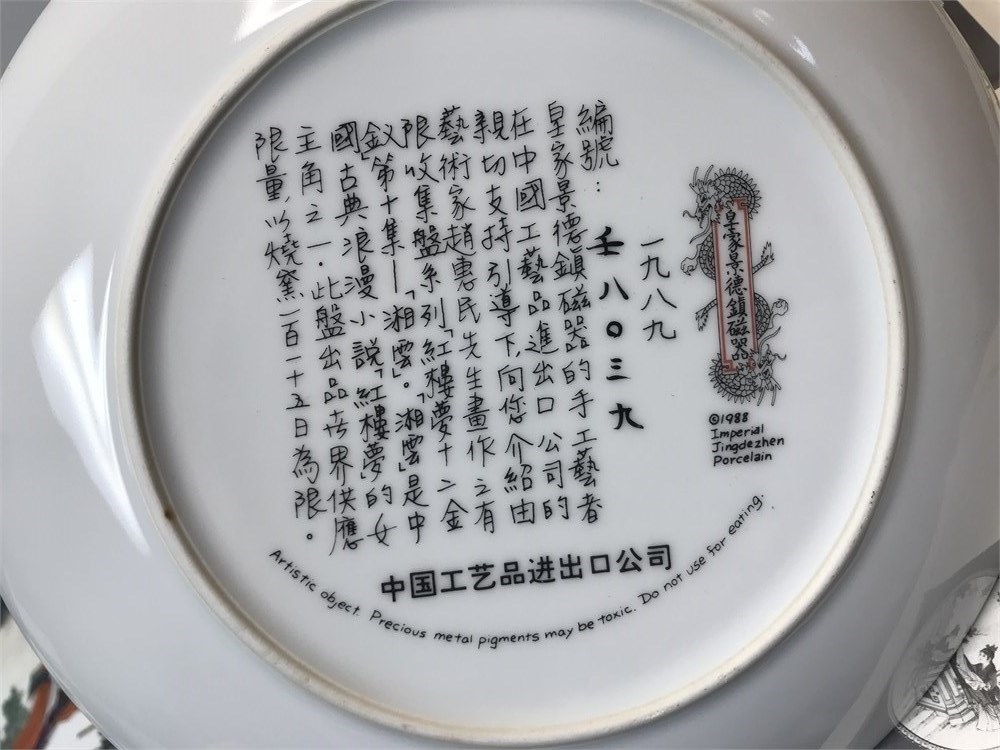 皇家景德鎮磁器
©1988
Imperial
Jingdezhen
Porcelain
一九八九
編號：壬八〇三九
皇家景德鎮磁器的手工藝者
在中國工藝品進出口公司的
親切支持引導下,向您介紹由
藝術家趙惠民先生畫作之有
限收集盤系列「紅樓夢十二金
釵」第十集—「湘雲」。「湘雲」是中
國古典浪漫小說「紅樓夢」的女
主角之一.此盤出品世界供應
限量,以燒窯一百一十五日為限。
中国工艺品进出口公司
Artistic object. Precious metal pigments may be toxic. Do not use for eating.